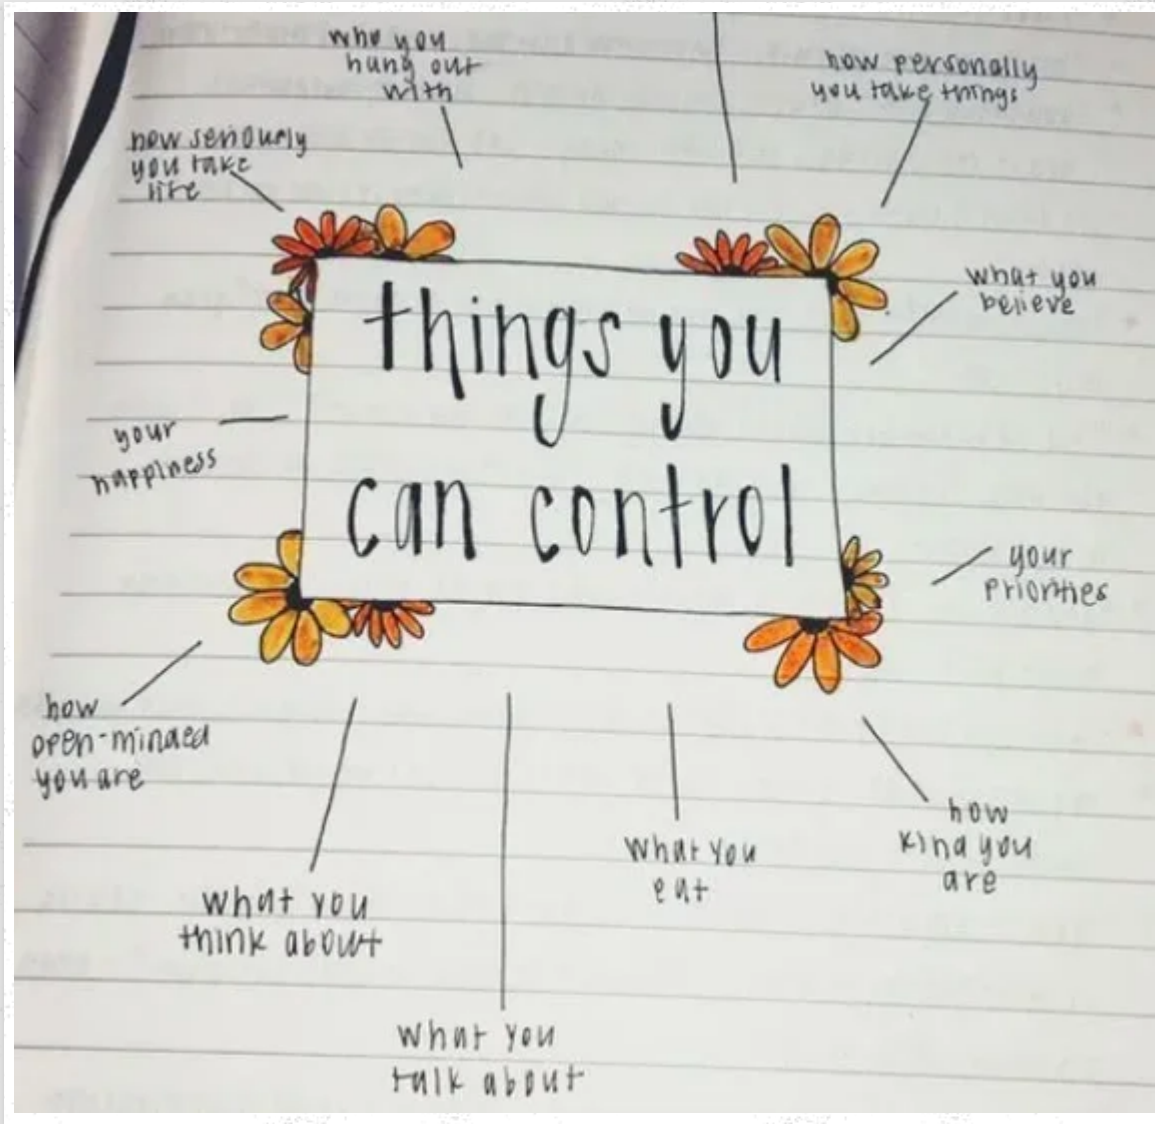 who you
hung out
with
how personally
you take things
how seriously
you take
life
what you
believe
things you
can control
your
happiness
your
priorities
how
open-minded
you are
what you
eat
how
kind you
are
what you
think about
what you
talk about